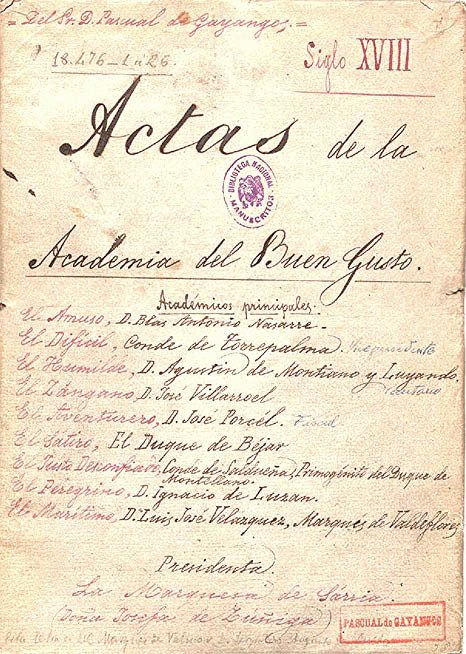 = Del Sr. D. Pascual de Gayangos. =
18.476-1 á 26.
Siglo XVIII
Actas de la
BIBLIOTECA NACIONAL
MANUSCRITOS
Academia del Buen Gusto.
Académicos principales.
El Amuso, D. Blas Antonio Nasarre -
El Difícil, Conde de Torrepalma. Vicepresidente
El Humilde, D. Agustin de Montiano y Luyando.
Secretario
El Zángano, D. José Villarroel
El Aventurero, D. José Porcél. Fiscal
El Satiro, El Duque de Béjar
El Justo Desconfiado, Conde de Saldueña, Primogénito del Duque de
Montellano.
El Peregrino, D. Ignacio de Luzan.
El Marítimo, D. Luis José Velazquez, Marqués de Valdeflores
Presidenta.
La Marquesa de Sárria.
(Doña Josefa de Zúñiga)
PASCUAL de GAYANGOS